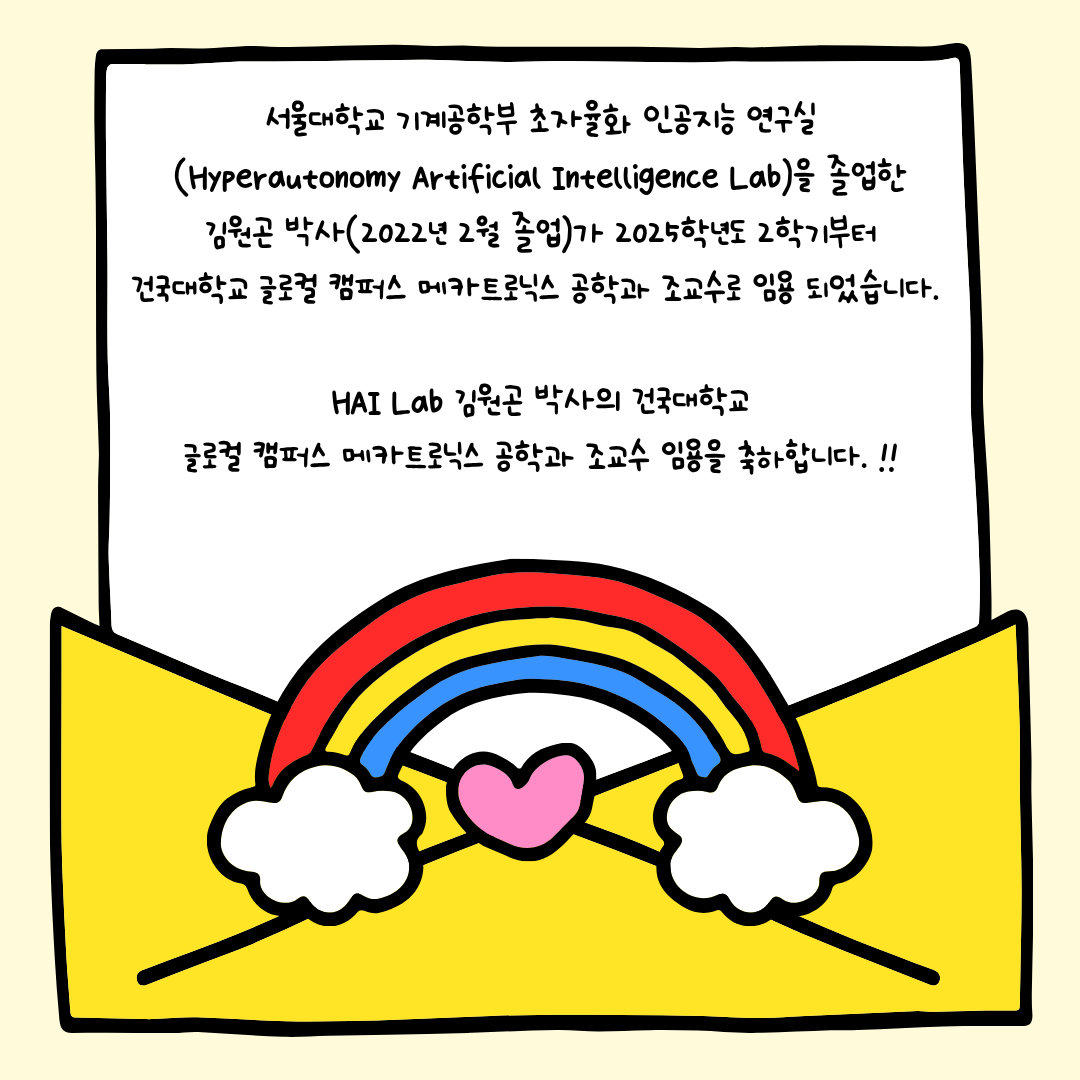 서울대학교 기계공학부 초자율화 인공지능 연구실
(Hyperautonomy Artificial Intelligence Lab)을 졸업한
김원곤 박사(2022년 2월 졸업)가 2025학년도 2학기부터
건국대학교 글로컬 캠퍼스 메카트로닉스 공학과 조교수로 임용 되었습니다.
HAI Lab 김원곤 박사의 건국대학교
글로컬 캠퍼스 메카트로닉스 공학과 조교수 임용을 축하합니다. !!